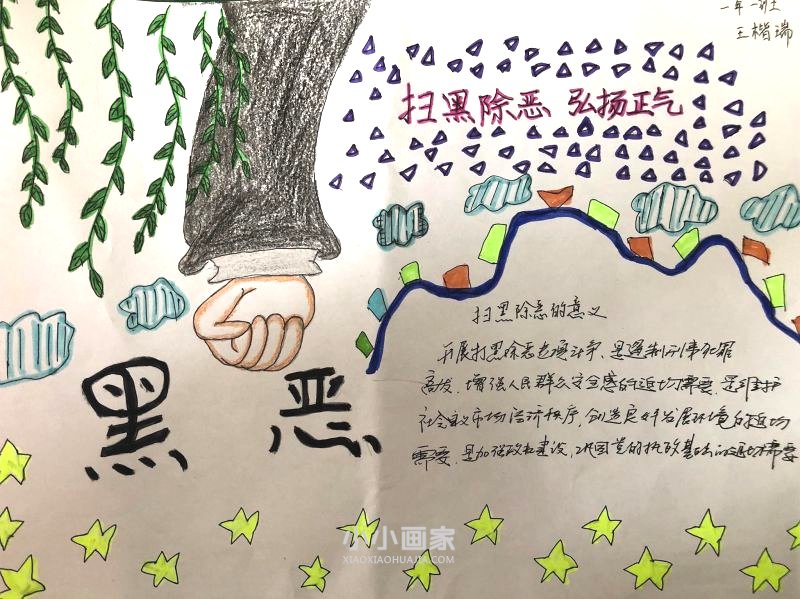 一年一班
王楷瑞
扫黑除恶 弘扬正气
扫黑除恶的意义
开展打黑除恶专项斗争、是遏制刑事犯罪
高发、增强人民群众安全感的迫切需要、是维护
社会主义市场经济秩序，创造良好发展环境的迫切
需要、是加强政权建设，巩固党的执政基础的迫切需要
黑 恶
小小画家
XIAOXIAOHUAJIA.COM